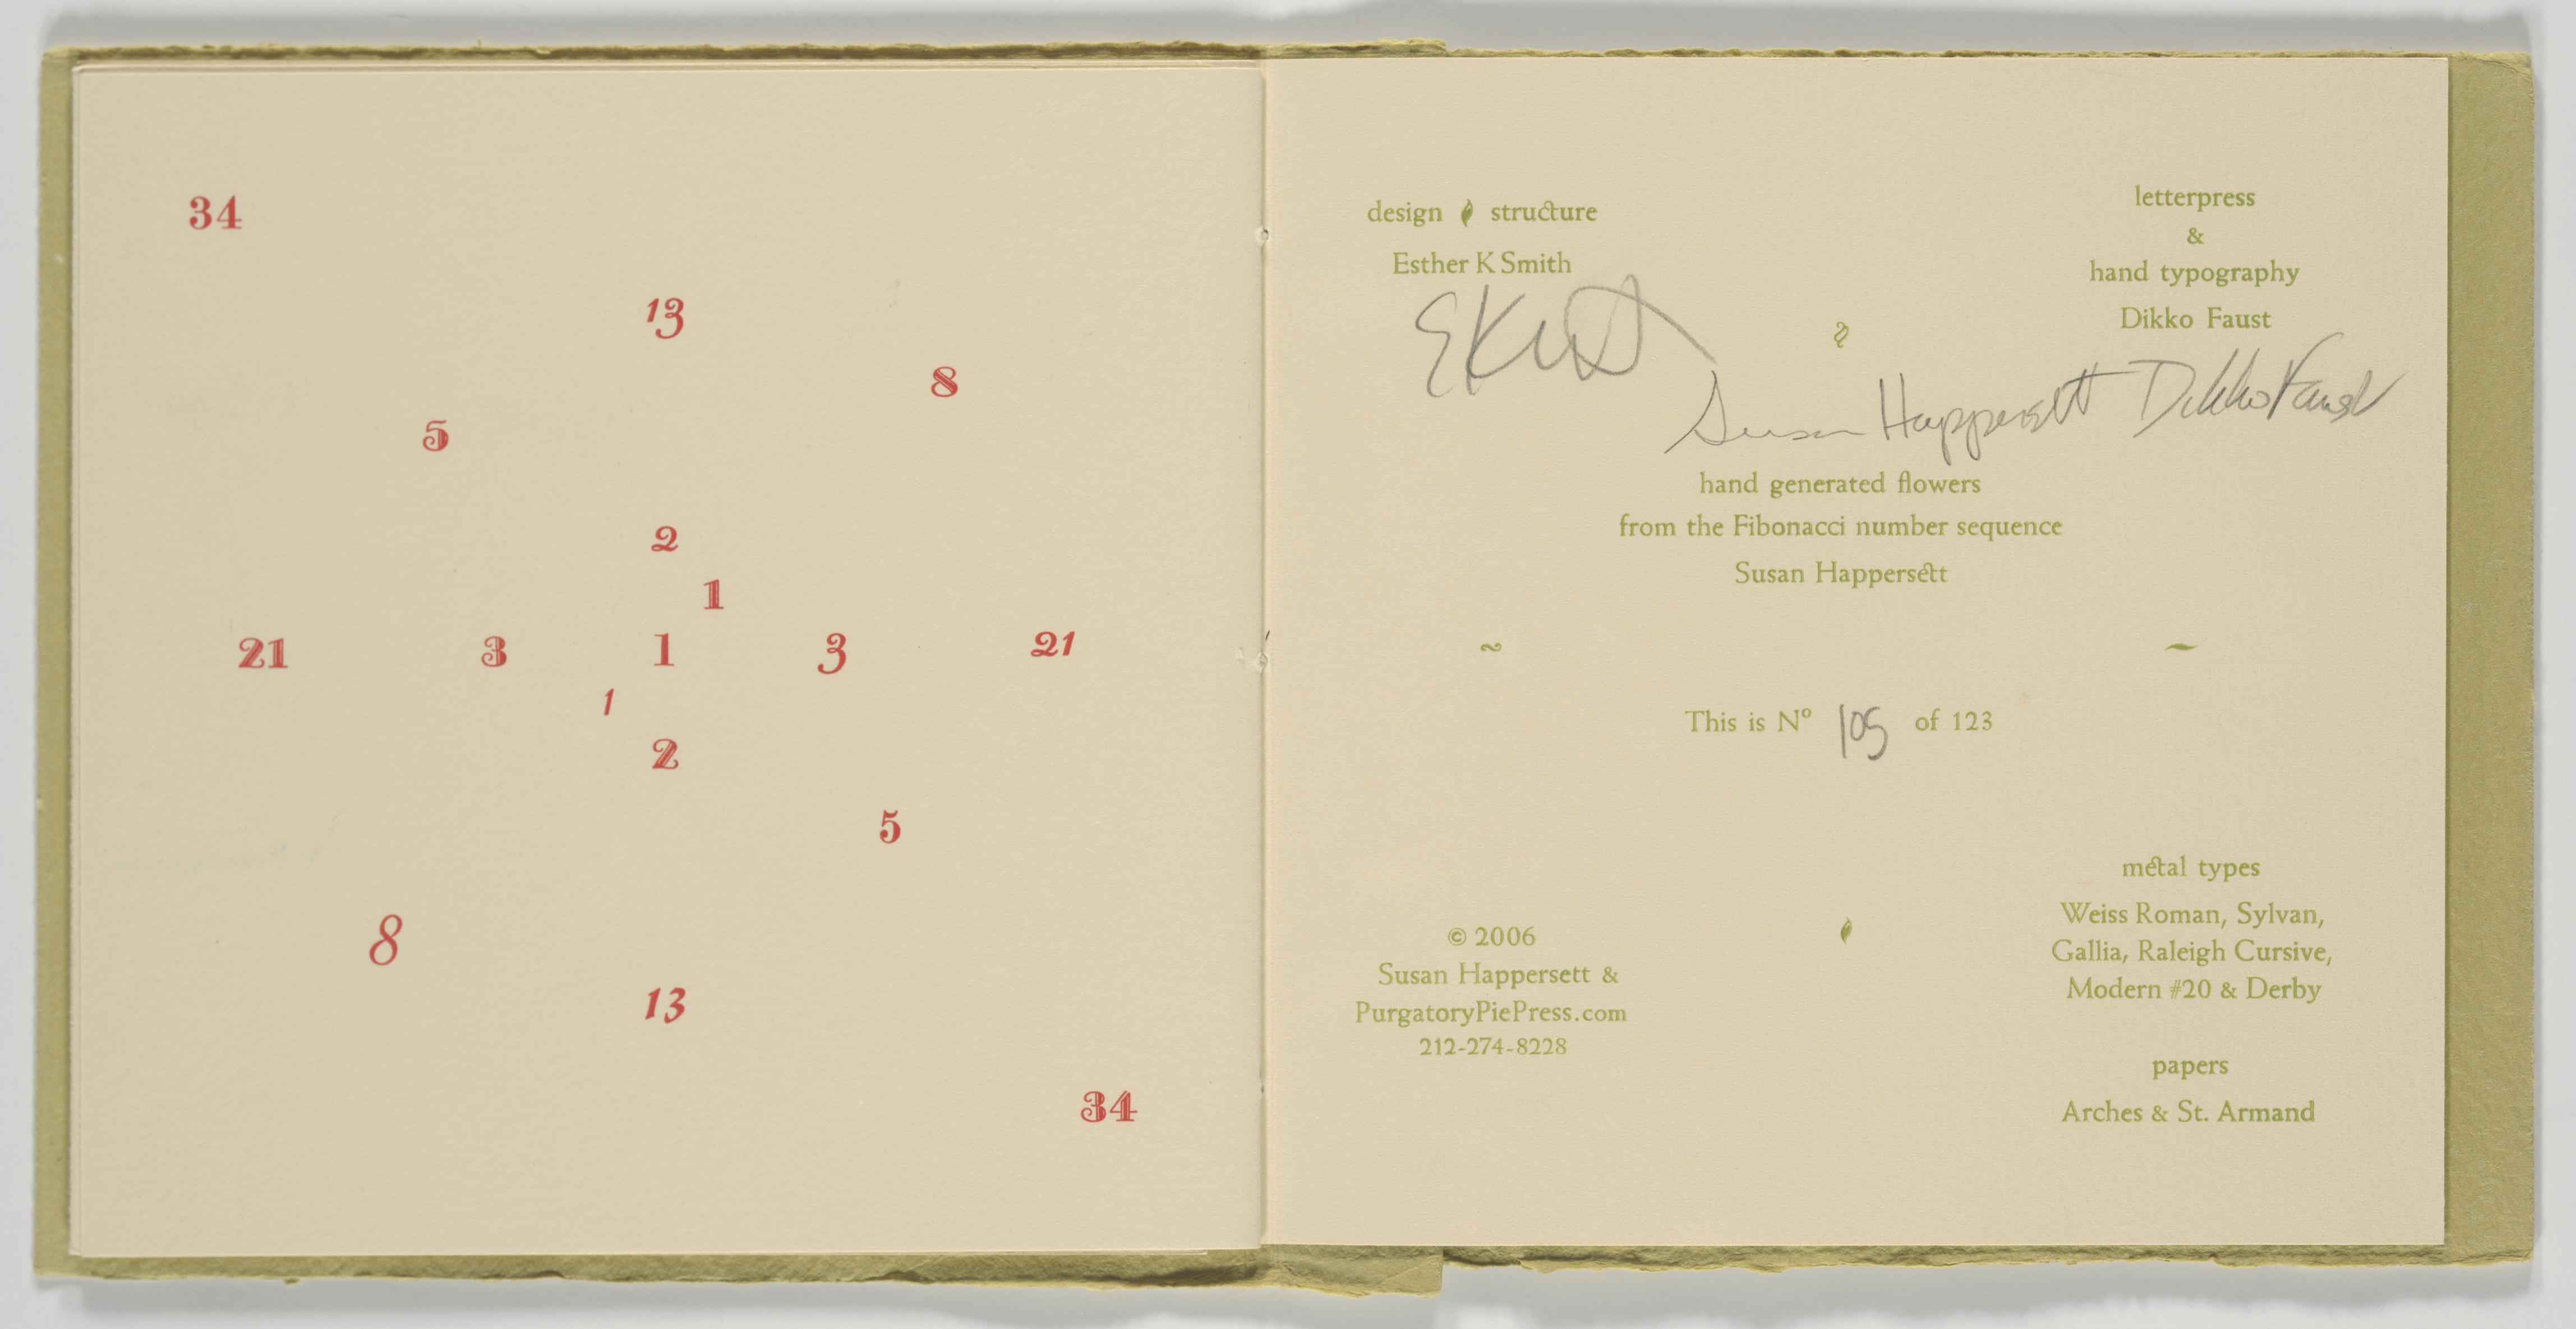 34
13
8
5
2
1
21 3 1 3 21
1
2
5
8
13
34
design structure
Esther K Smith
letterpress
&
hand typography
Dikko Faust
Susan Happersett
Dikko Faust
hand generated flowers
from the Fibonacci number sequence
Susan Happersett
This is Nº 105 of 123
© 2006
Susan Happersett &
PurgatoryPiePress.com
212-274-8228
metal types
Weiss Roman, Sylvan,
Gallia, Raleigh Cursive,
Modern #20 & Derby
papers
Arches & St. Armand